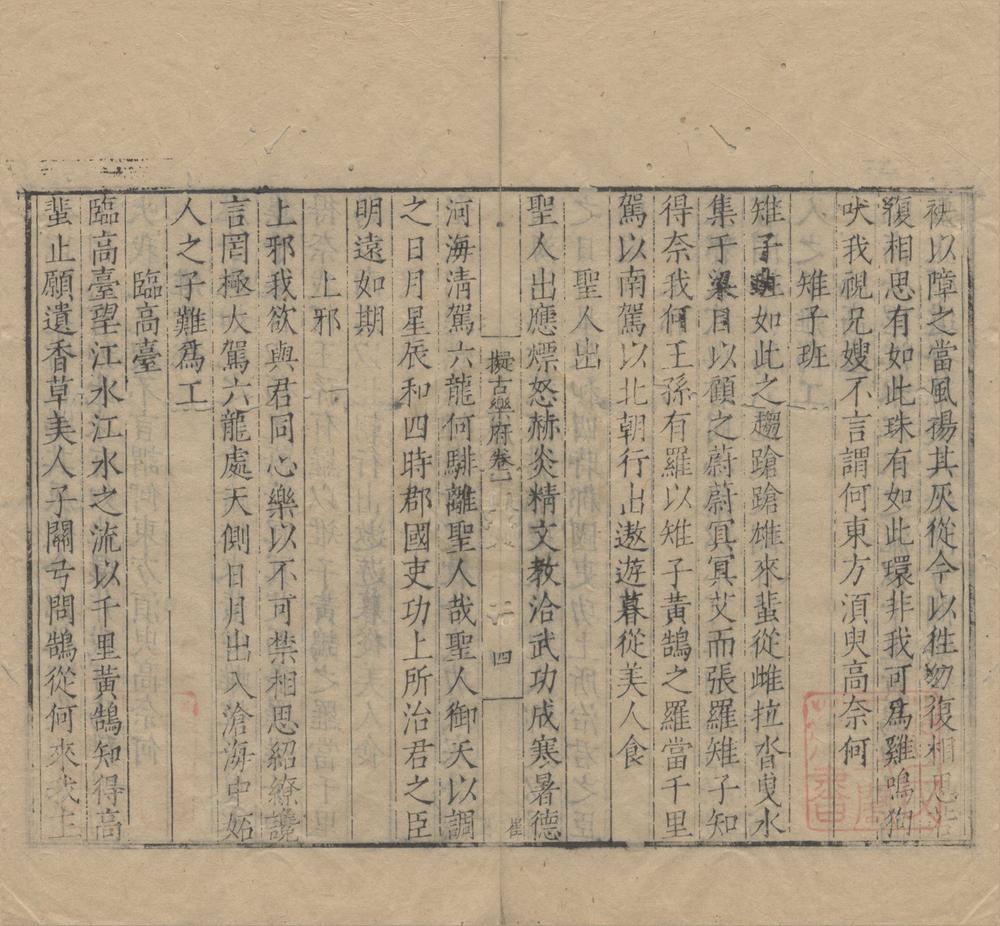 袂以障之當風揚其灰從今以徃勿復相思君
腹相思有如此珠有如此環非我可爲雞鳴狗
吠我視兄嫂不言謂何東方湏臾高奈何
雉子班
雉子班如此之趨蹌蹌雄來蜚從雌拉沓叟水
集于梁且以顧之蔚蔚冥冥艾而張羅雉子知
得奈我何王孫有羅以雉子黃鵠之羅當千里
駕以南駕以北朝行出遨遊暮從美人食
聖人出
聖人出應熛怒赫炎精文教洽武功成寒暑德
河海淸駕六龍何騑離聖人哉聖人御天以調
之日月星辰和四時郡國吏功上所治君之臣
明遠如期
上邪
上邪我欲與君同心樂以不可禁相思紹繚讒
言罔極大駕六龍處天側日月出入滄海中姤
人之子難爲工
臨高臺
臨高臺望江水江水之流以千里黃鵠知得高
蜚止願遺香草美人子關弓問鵠從何來我主
擬古樂府卷一
四